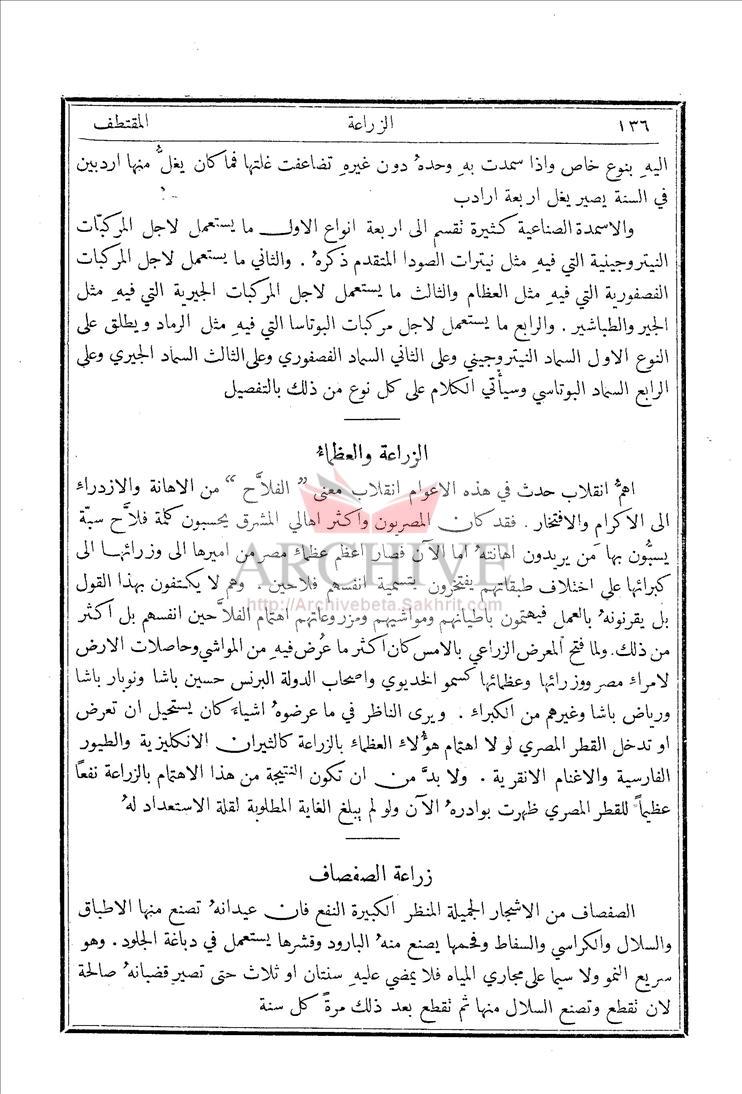 ١٣٦ الزراعة المقتطف
اليهِ بنوع خاص واذا سمدت بهِ وحدهُ دون غيرهِ تضاعفت غلتها فما كان يغلُّ منها اردبين
في السنة يصير يغل اربعة ارادب
والاسمدة الصناعية كثيرة تقسم الى اربعة انواع الاول ما يستعمل لاجل المركبّات
النيتروجينية التي فيهِ مثل نيترات الصودا المتقدم ذكرهُ . والثاني ما يستعمل لاجل المركبات
الفصفورية التي فيهِ مثل العظام والثالث ما يستعمل لاجل المركبات الجيرية التي فيهِ مثل
الجير والطباشير . والرابع ما يستعمل لاجل مركبات البوتاسا التي فيهِ مثل الرماد ويطلق على
النوع الاول السماد النيتروجيني وعلى الثاني السماد الفصفوري وعلى الثالث السماد الجيري وعلى
الرابع السماد البوتاسي وسيأتي الكلام على كل نوع من ذلك بالتفصيل
الزراعة والعظماء
اهمُّ انقلاب حدث في هذه الاعوام انقلاب معنى " الفلاَّح " من الاهانة والازدراء
الى الاكرام والافتخار . فقد كان المصريون واكثر اهالي المشرق يحسبون كلمة فلاَّح سبّة
يسبُّون بها مَن يريدون اهانتهُ اما الآن فصار اعظم عظماء مصر من اميرها الى وزرائها الى
كبرائها على اختلاف طبقاتهم يفتخرون بتسمية انفسهم فلاحين . وهم لا يكتفون بهذا القول
بل يقرنونهُ بالعمل فيهتمون باطيانهم ومواشيهم ومزروعاتهم اهتمام الفلاَّحين انفسهم بل اكثر
من ذلك. ولما فتح المعرض الزراعي بالامس كان اكثر ما عُرض فيهِ من المواشي وحاصلات الارض
لامراء مصر ووزرائها وعظمائها كسمو الخديوي واصحاب الدولة البرنس حسين باشا ونوبار باشا
ورياض باشا وغيرهم من الكبراء . ويرى الناظر في ما عرضوهُ اشياءَ كان يستحيل ان تعرض
او تدخل القطر المصري لولا اهتمام هؤلاء العظماء بالزراعة كالثيران الانكليزية والطيور
الفارسية والاغنام الانقرية . ولا بدَّ من ان تكون النتيجة من هذا الاهتمام بالزراعة نفعاً
عظيماً للقطر المصري ظهرت بوادرهُ الآن ولو لم يبلغ الغاية المطلوبة لقلة الاستعداد لهُ
زراعة الصفصاف
الصفصاف من الاشجار الجميلة المنظر الكبيرة النفع فان عيدانهُ تصنع منها الاطباق
والسلال والكراسي والسفاط وفحمها يصنع منهُ البارود وقشرها يستعمل في دباغة الجلود. وهو
سريع النمو ولا سيما على مجاري المياه فلا يمضي عليهِ سنتان او ثلاث حتى تصير قضبانهُ صالحة
لان تقطع وتصنع السلال منها ثم تقطع بعد ذلك مرةً كل سنة
ARCHIVE
http://Archivebeta.Sakhrit.com